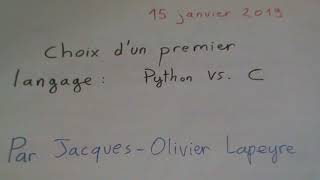 15 janvier 2019
Choix d'un premier
langage : Python vs. C
Par Jacques-Olivier Lapeyre